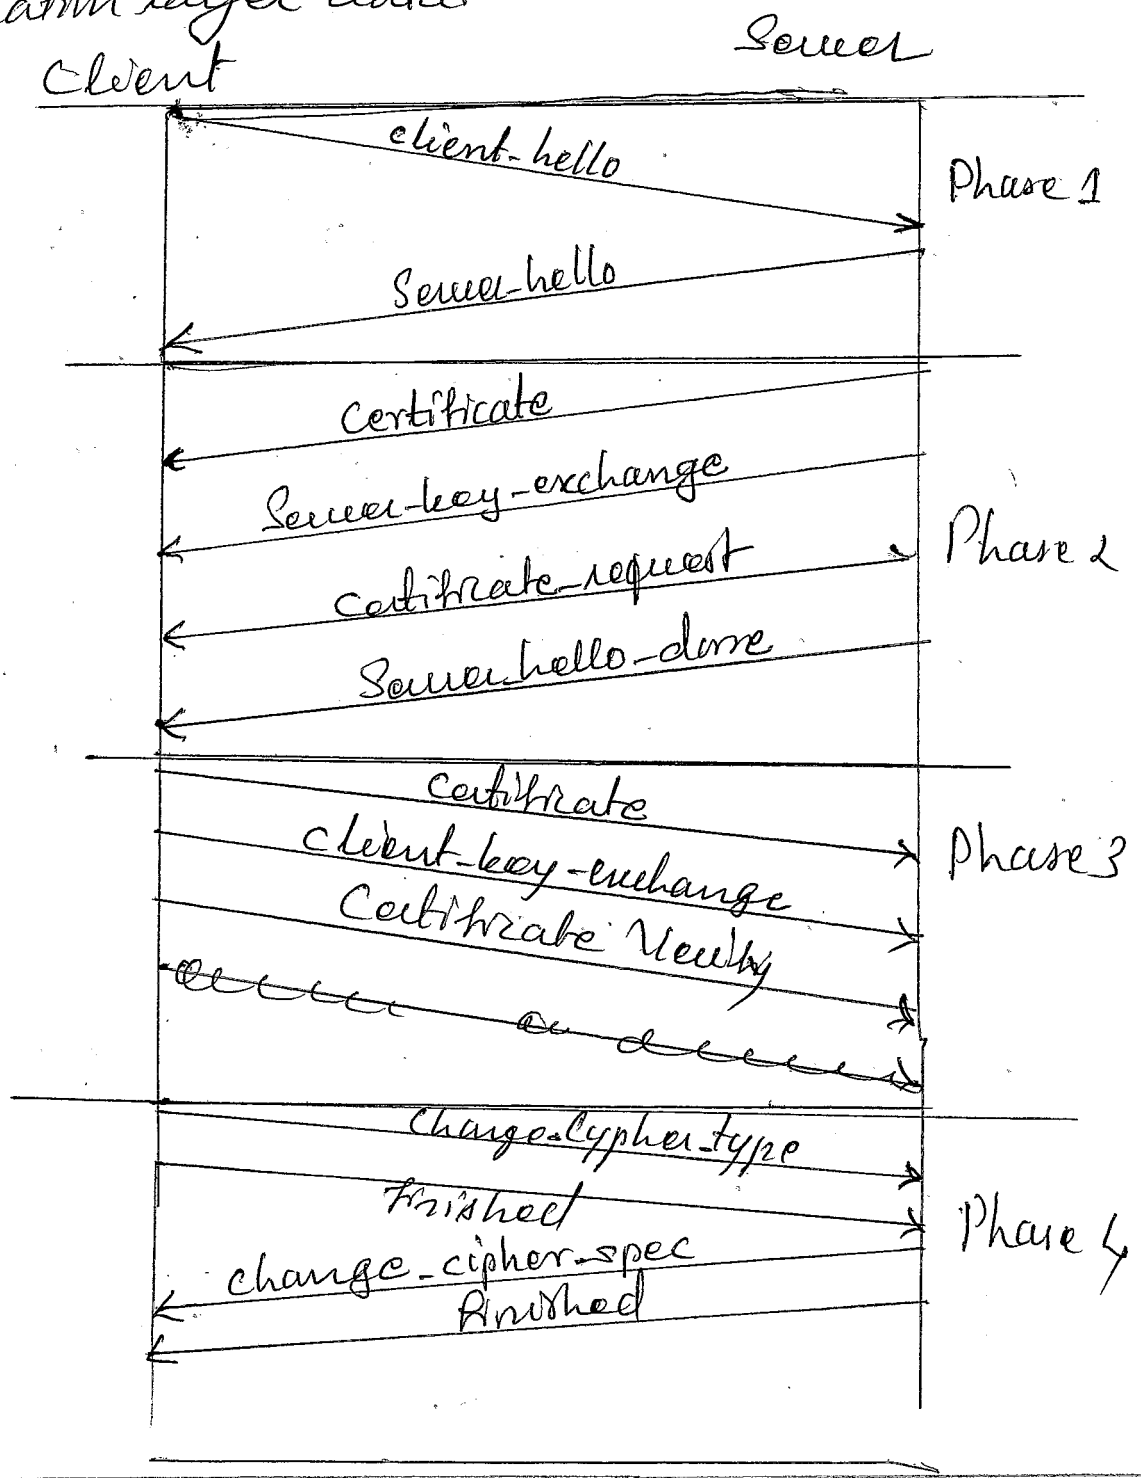 layer
Client
Server
client-hello
Phase 1
Server-hello
Certificate
Server-key-exchange
Phase 2
certificate_request
Server_hello-done
certificate
Phase 3
client-key-exchange
Certificate Verify
Change_Cypher_type
Finished
Phase 4
change_cipher_spec
Finished